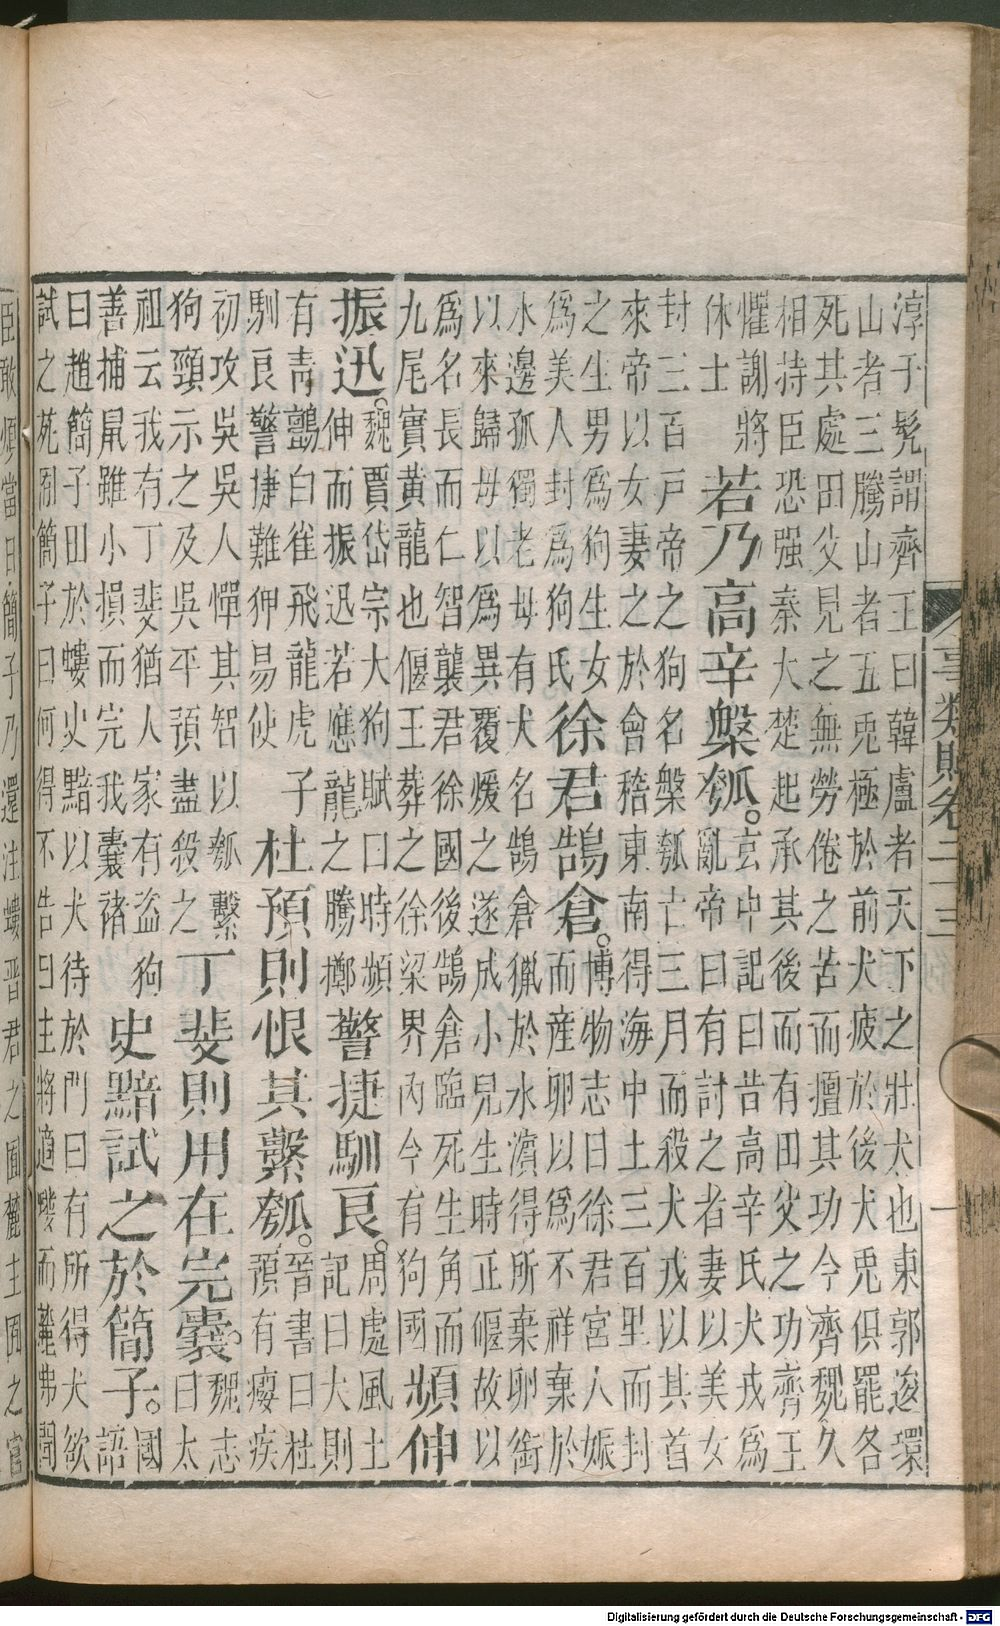 事類賦卷二十三　一
淳于髡謂齊王曰韓盧者天下之壯犬也東郭逡環
山者三騰山者五兎極於前犬疲於後犬兎俱罷各
死其處田父見之無勞倦之苦而擅其功今齊魏久
相持臣恐强秦大楚起承其後而有田父之功齊王
懼謝將
休士
若乃高辛槃瓠。
玄中記曰昔高辛氏犬戎爲
亂帝曰有討之者妻以美女
封三百戶帝之狗名槃瓠亡三月而殺犬戎以其首
來帝以女妻之於會稽東南得海中土三百里而封
之生男爲狗生女
爲美人封爲狗氏
徐君鵠倉。
博物志曰徐君宮人娠
而産卵以爲不祥棄於
水邊孤獨老母有犬名鵠倉獵於水濱得所棄卵銜
以來歸母以爲異覆煖之遂成小兒生時正偃故以
爲名長而仁智襲君徐國後鵠倉臨死生角而
九尾實黃龍也偃王葬之徐梁界內今有狗國
頻伸
振迅。
魏賈岱宗大狗賦曰時頻
伸而振迅若應龍之騰擲
警捷馴良。
周處風土
記曰大則
有青鸇白雀飛龍虎子
馴良警捷難狎易使
杜預則恨其繫瓠。
晉書曰杜
預有癭疾
初攻吳吳人憚其智以瓠繫
狗頸示之及吳平預盡殺之
丁斐則用在完囊。
魏志
曰太
祖云我有丁斐猶人家有盜狗
善捕鼠雖小損而完我囊褚
史黯試之於簡子。
國
語
曰趙簡子田於螻史黯以犬待於門曰有所得犬欲
試之茲囿簡子曰何得不告曰主將適螻而麓弗聞
臣敢煩當日簡子乃還注螻晉君之囿麓主囿之官
Digitalisierung gefördert durch die Deutsche Forschungsgemeinschaft - DFG